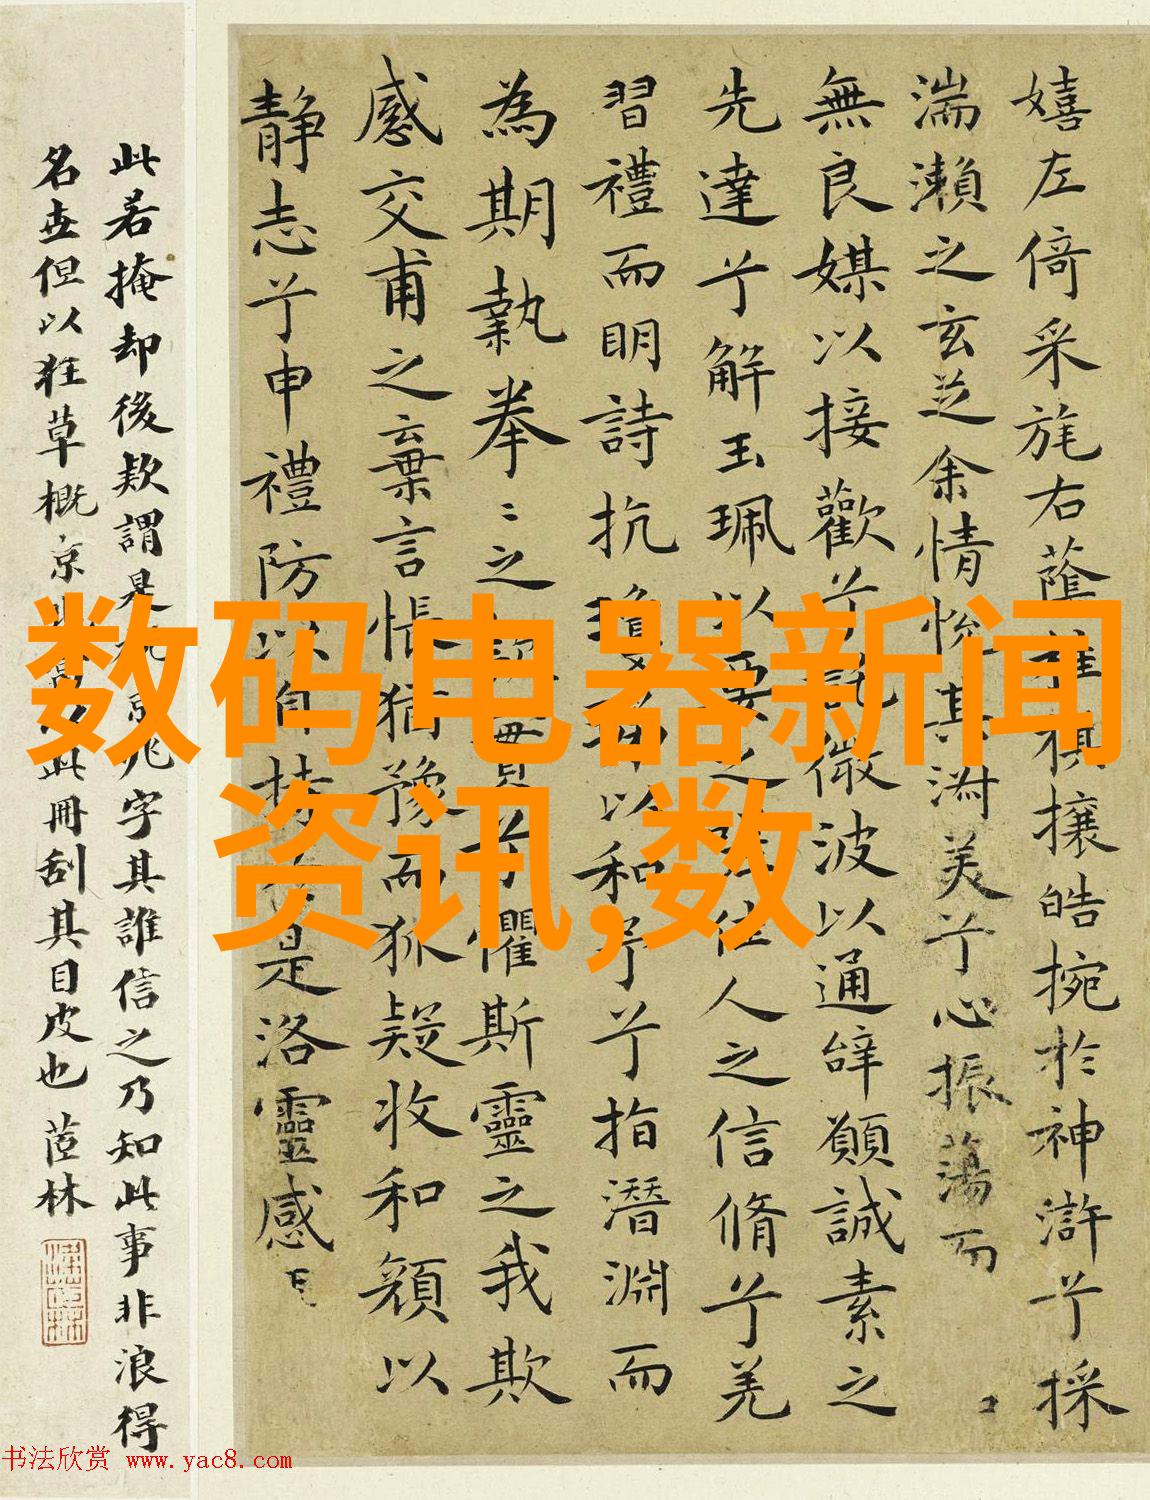 嬉左倚采旄右蔭
攘皓捥於神滸兮採
湍瀨之玄芝余情悅其淑美兮心振蕩而
無良媒以接歡兮託微波以通辭願誠素之
先達兮解玉珮以要之
佳人之信脩兮羌
習禮而明詩抗
以和予兮指潛淵而
為期執拳〻之
懼斯靈之我欺
感交甫之棄言悵猶豫而狐疑收和顏以
靜志兮申禮防以自持
是洛靈感
此若掩却後款謂是
字其誰信之乃知此事非浪得
名世但以狂草概京
此冊刮其目皮也 茝林
数码电器新闻
资讯,数
书法欣赏 www.yac8.com